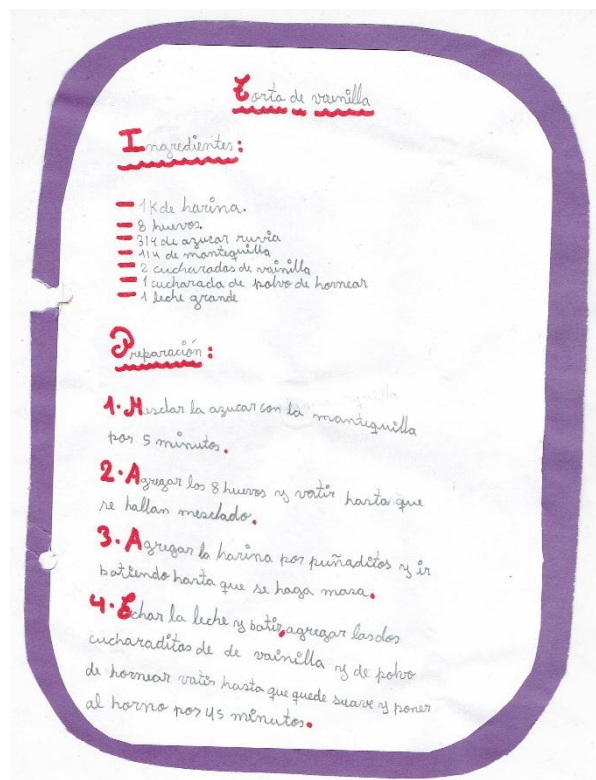 Torta de vainilla
Ingredientes:
1K de harina.
8 huevos.
3/4 de azucar ruvia
1/4 de mantequilla
2 cucharadas de vainilla
1 cucharada de polvo de hornear
1 leche grande
Preparación:
1. Mesclar la azucar con la mantequilla
por 5 minutos.
2. Agregar los 8 huevos y vatir hasta que
se hallan mesclado.
3. Agregar la harina por puñaditos y ir
batiendo hasta que se haga masa.
4. Echar la leche y batir, agregar las dos
cucharaditas de de vainilla y de polvo
de hornear vatir hasta que quede suave y poner
al horno por 45 minutos.